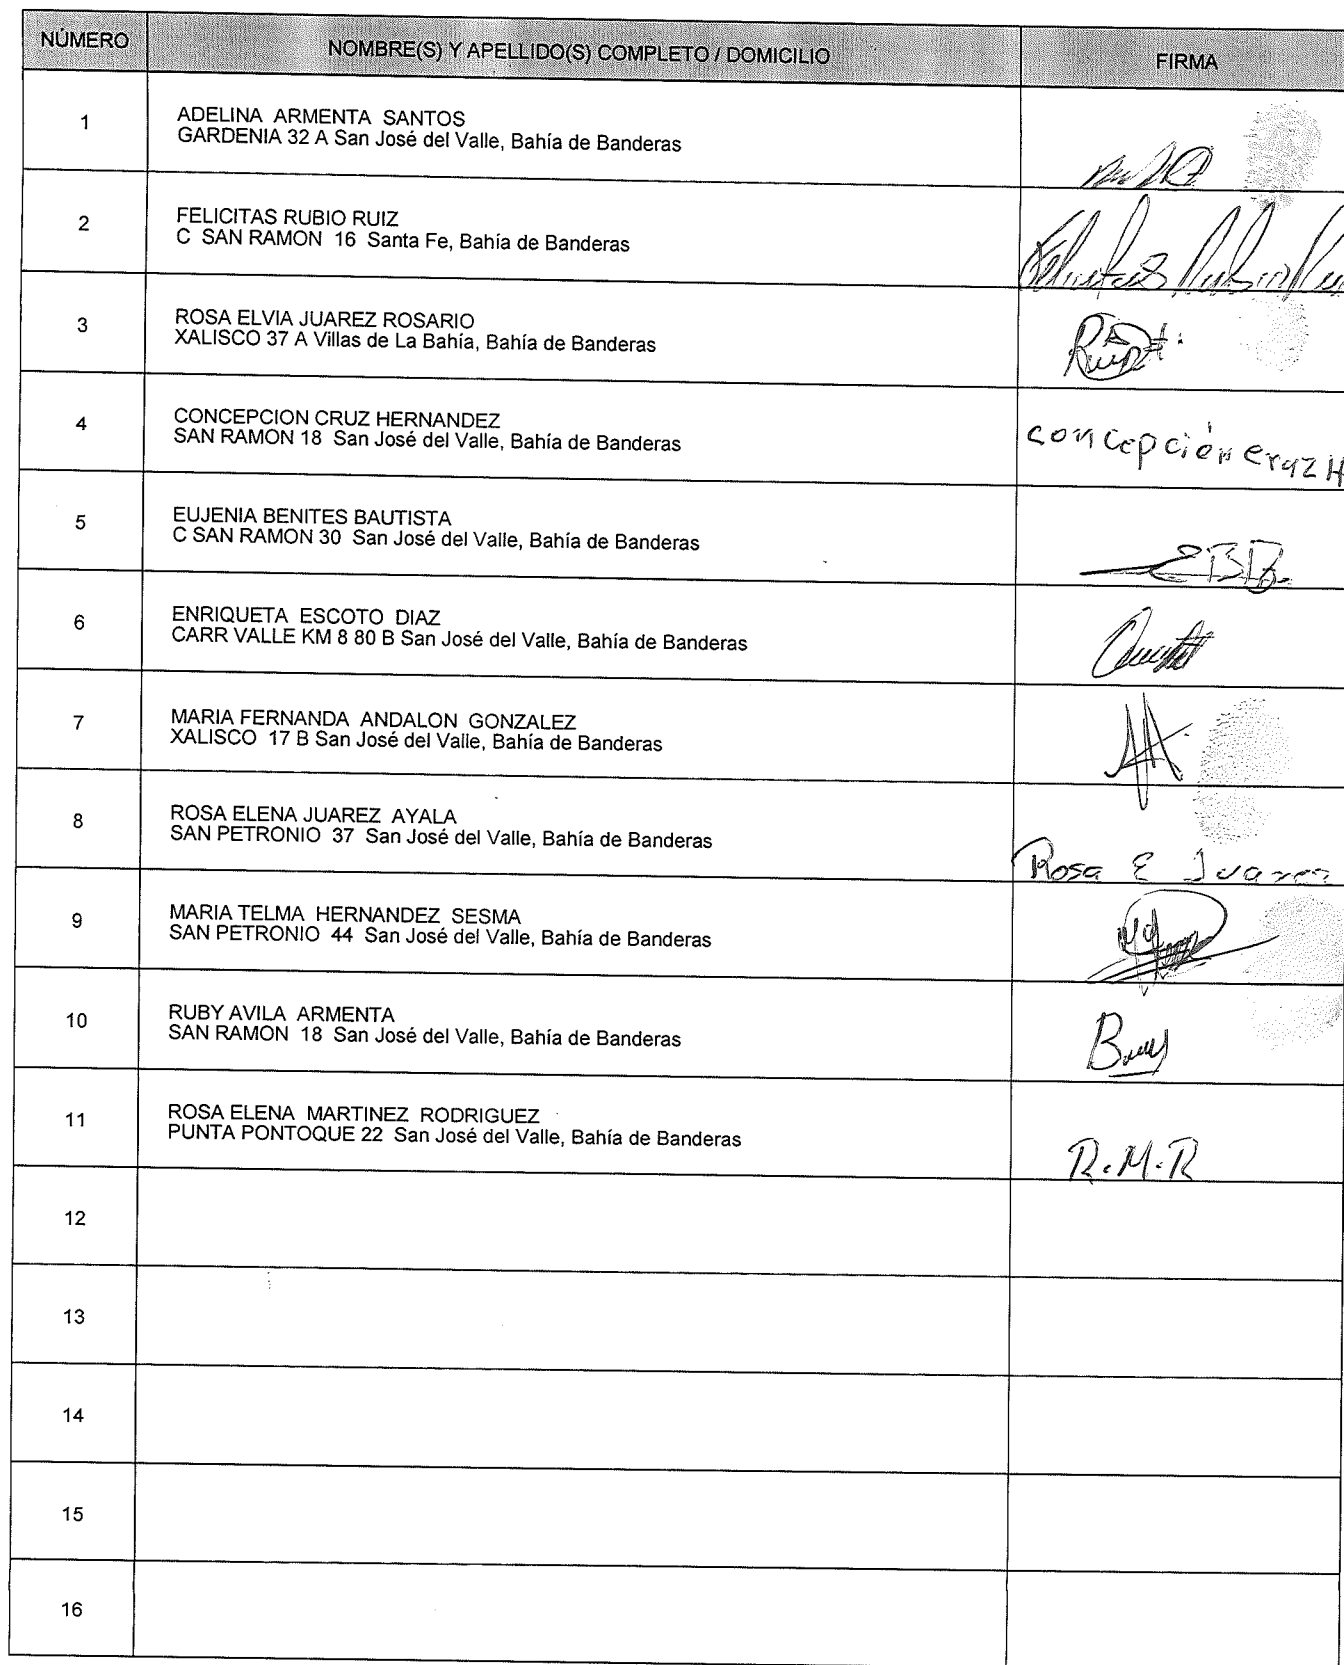 NÚMERO
NOMBRE(S) Y APELLIDO(S) COMPLETO / DOMICILIO
FIRMA
1
ADELINA ARMENTA SANTOS
GARDENIA 32 A San José del Valle, Bahía de Banderas
2
FELICITAS RUBIO RUIZ
C SAN RAMON 16 Santa Fe, Bahía de Banderas
Felicitas Rubio Rui
3
ROSA ELVIA JUAREZ ROSARIO
XALISCO 37 A Villas de La Bahía, Bahía de Banderas
4
CONCEPCION CRUZ HERNANDEZ
SAN RAMON 18 San José del Valle, Bahía de Banderas
concepción cruz H
5
EUJENIA BENITES BAUTISTA
C SAN RAMON 30 San José del Valle, Bahía de Banderas
EBB.
6
ENRIQUETA ESCOTO DIAZ
CARR VALLE KM 8 80 B San José del Valle, Bahía de Banderas
7
MARIA FERNANDA ANDALON GONZALEZ
XALISCO 17 B San José del Valle, Bahía de Banderas
8
ROSA ELENA JUAREZ AYALA
SAN PETRONIO 37 San José del Valle, Bahía de Banderas
Rosa E Juarez
9
MARIA TELMA HERNANDEZ SESMA
SAN PETRONIO 44 San José del Valle, Bahía de Banderas
10
RUBY AVILA ARMENTA
SAN RAMON 18 San José del Valle, Bahía de Banderas
11
ROSA ELENA MARTINEZ RODRIGUEZ
PUNTA PONTOQUE 22 San José del Valle, Bahía de Banderas
R.M.R
12
13
14
15
16